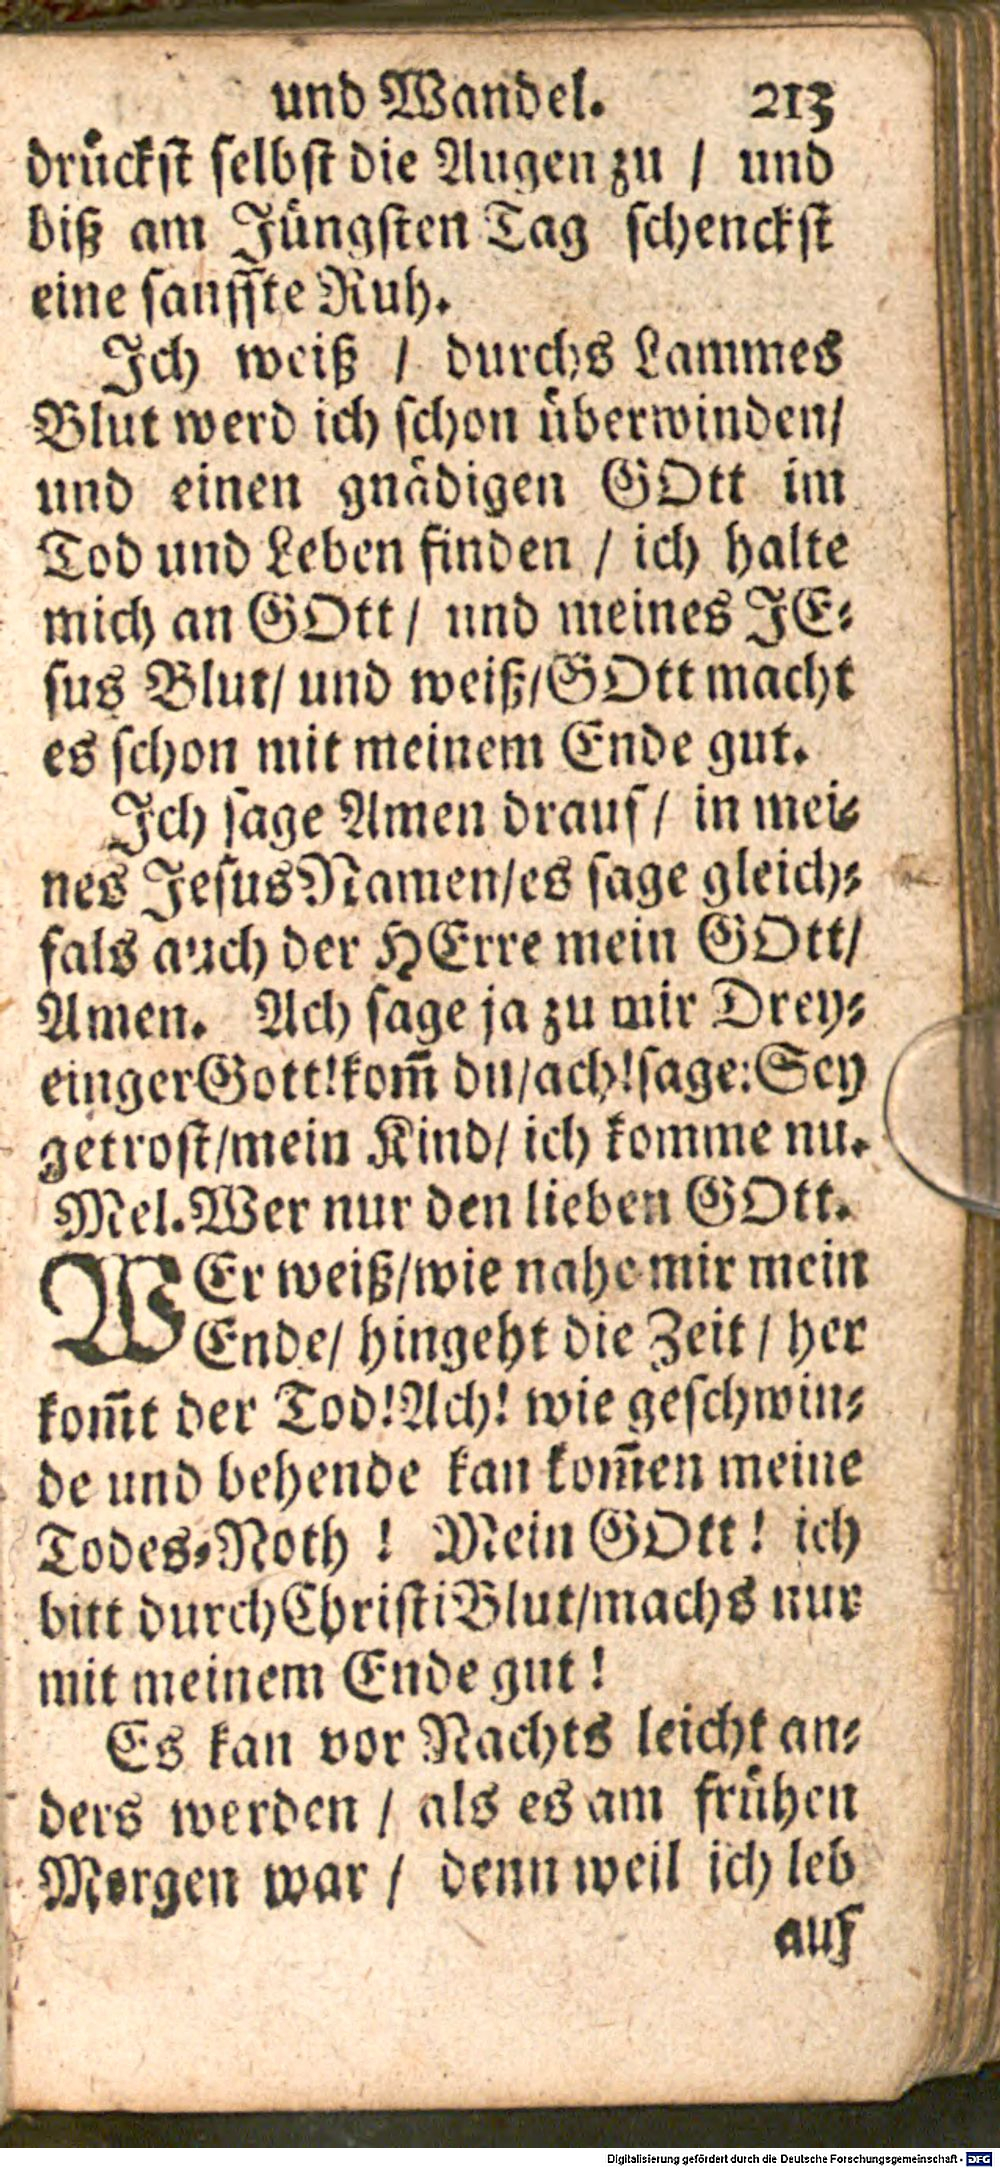 und Wandel. 213
drückst selbst die Augen zu / und
biß am Jüngsten Tag schenckst
eine sanffte Ruh.
Ich weiß / durchs Lammes
Blut werd ich schon überwinden/
und einen gnädigen GOtt im
Tod und Leben finden / ich halte
mich an GOtt / und meines JE-
sus Blut/ und weiß/GOtt macht
es schon mit meinem Ende gut.
Ich sage Amen drauf / in mei-
nes Jesus Namen/es sage gleich-
fals auch der HErre mein GOtt/
Amen. Ach sage ja zu mir Drey-
einger Gott!kom̅ du/ach!sage:Sey
getrost/mein Kind/ ich komme nu.
Mel. Wer nur den lieben GOtt.
WEr weiß/wie nahe mir mein
Ende/ hingeht die Zeit / her
kom̅t der Tod!Ach! wie geschwin-
de und behende kan kom̅en meine
Todes-Noth ! Mein GOtt! ich
bitt durch Christi Blut/machs nur
mit meinem Ende gut!
Es kan vor Nachts leicht an-
ders werden / als es am frühen
Morgen war / denn weil ich leb
auf
Digitalisierung gefördert durch die Deutsche Forschungsgemeinschaft - DFG